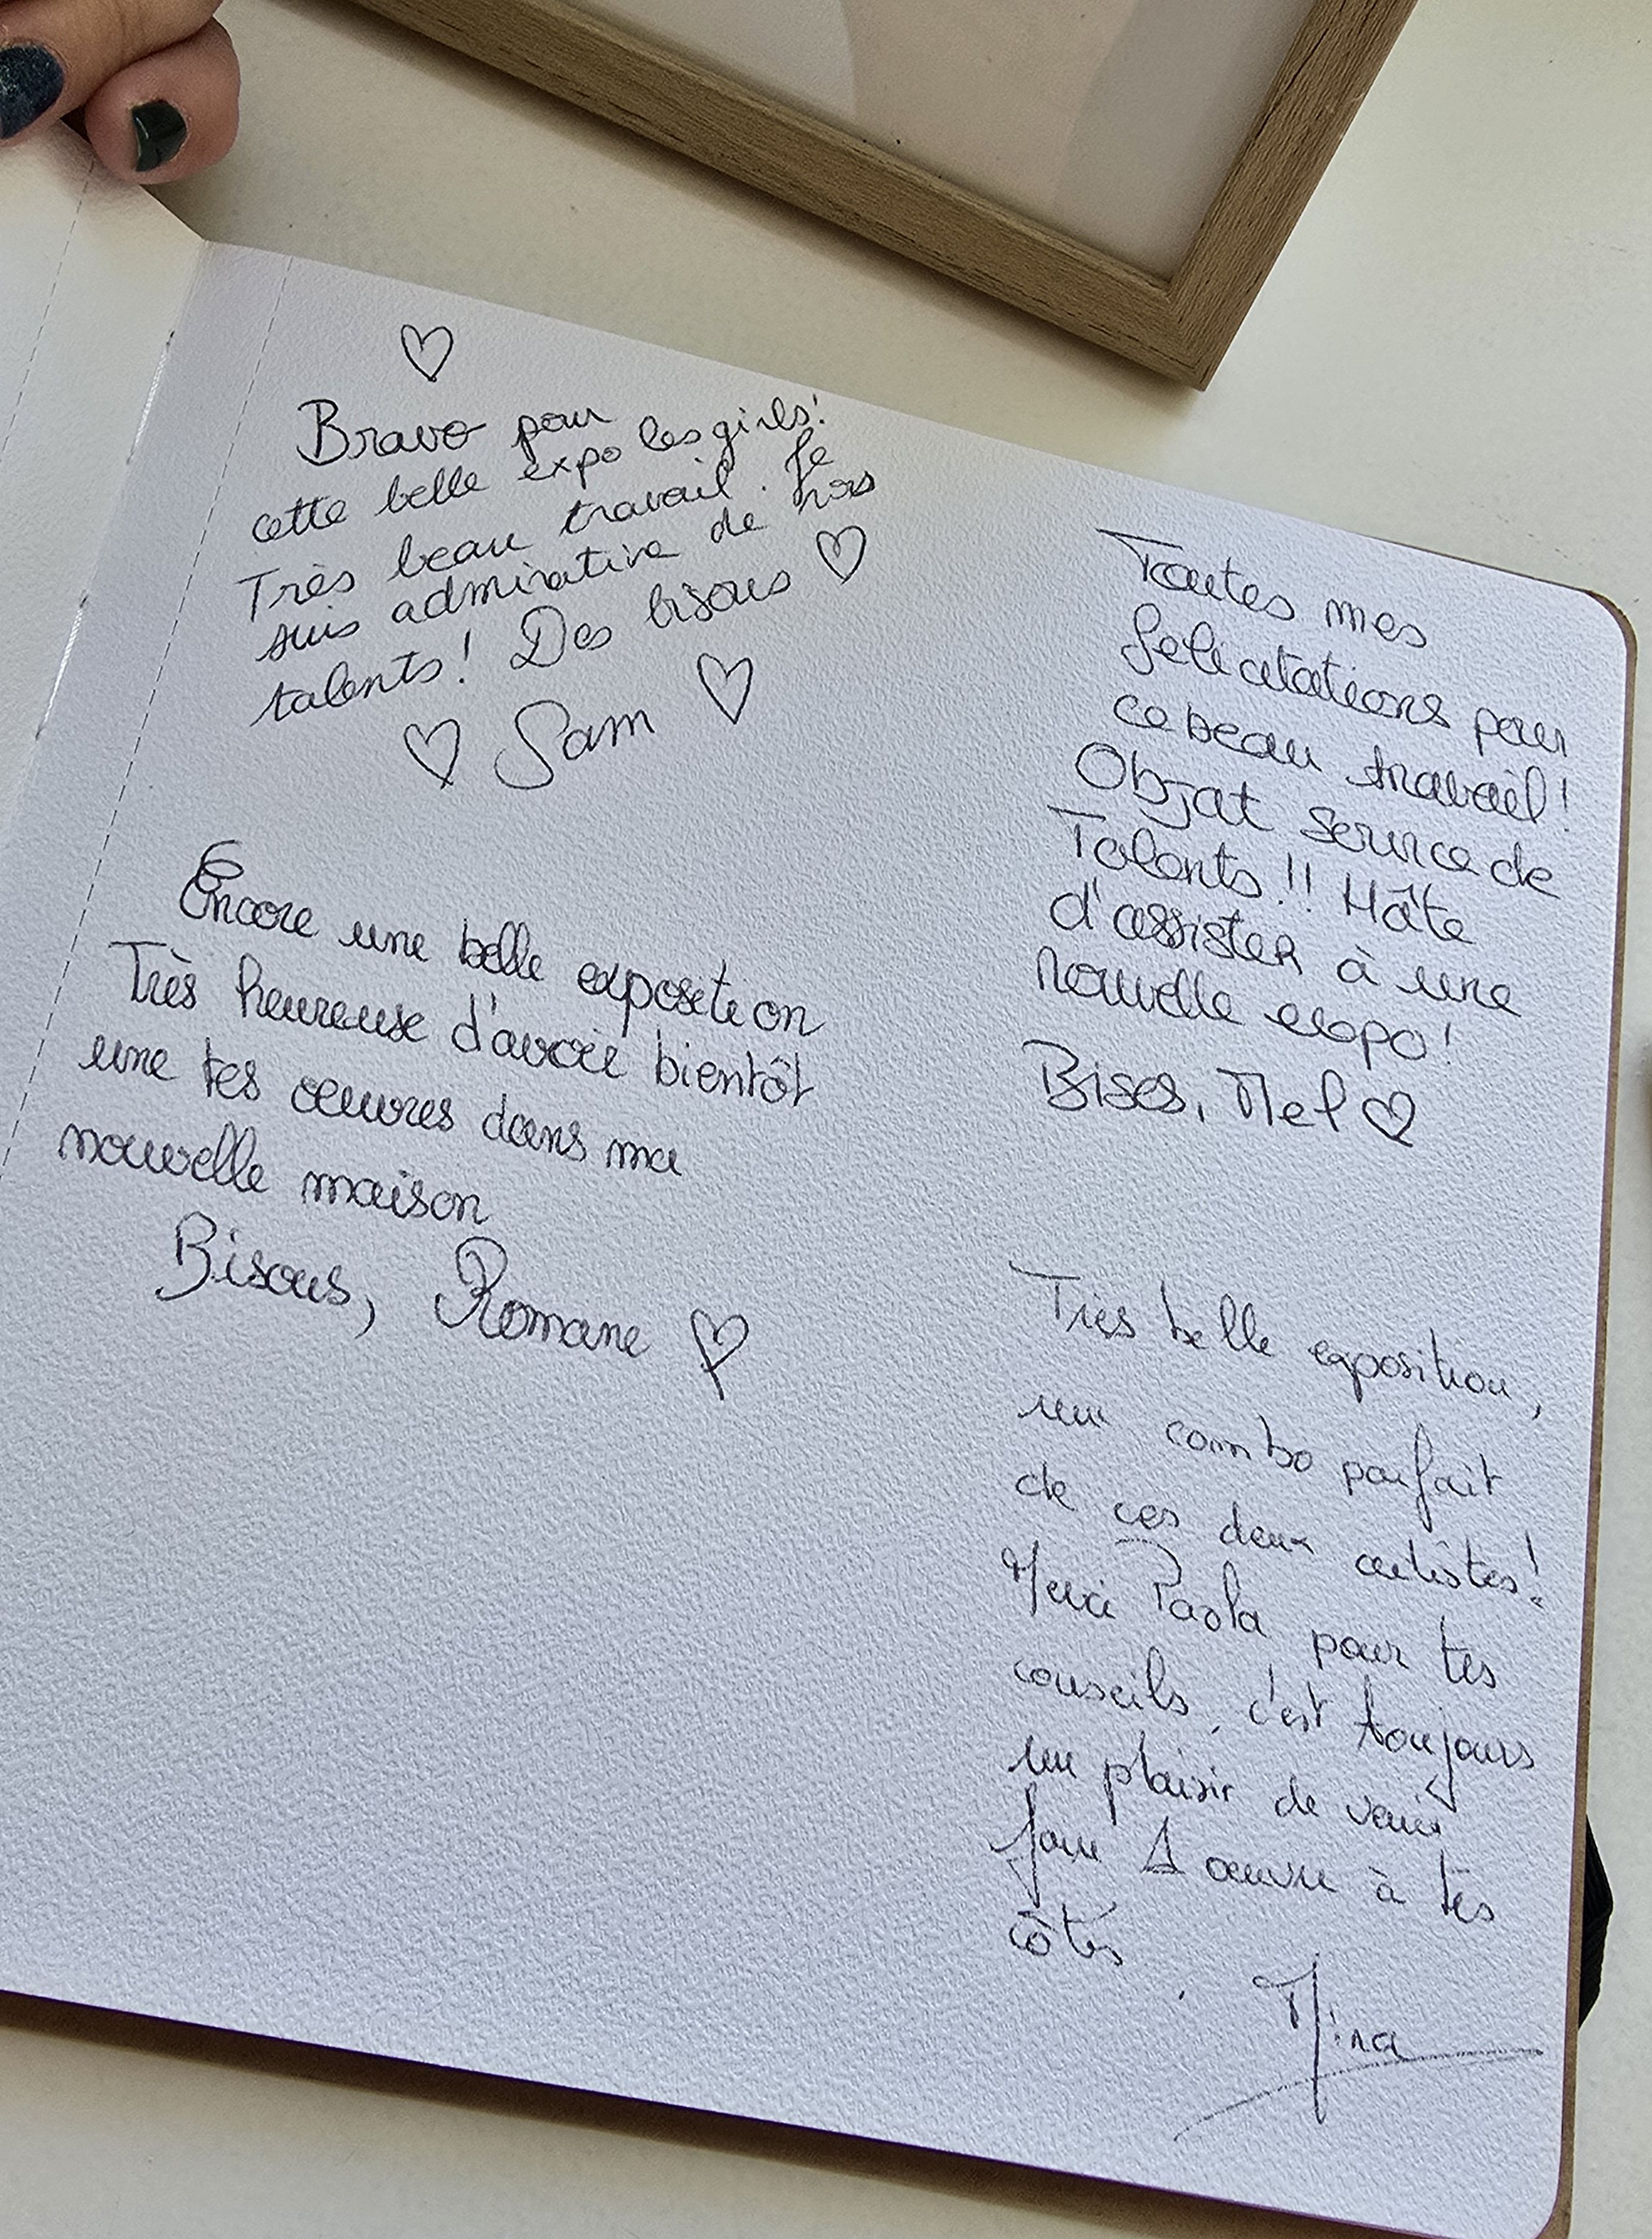 Bravo pour
cette belle expo les girls!
Très beau travail. Je
suis admirative de vos
talents! Des bisous ♡
♡ Sam ♡
Encore une belle exposition
Très heureuse d'avoir bientôt
une tes œuvres dans ma
nouvelle maison
Bisous, Romane ♡
Toutes mes
félicitations pour
ce beau travail!
Objat service de
Talents!! Hâte
d'assister à une
nouvelle expo!
Bises, Mel ♡
Très belle exposition,
un combo parfait
de ces deux artistes!
Merci Paola pour tes
conseils, c'est toujours
un plaisir de venir
faire 1 œuvre à tes
côtés.
Nina